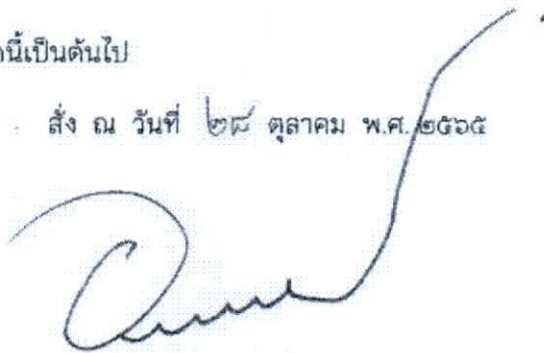 นี้เป็นต้นไป
สั่ง ณ วันที่ ๒๘ ตุลาคม พ.ศ. ๒๕๖๕